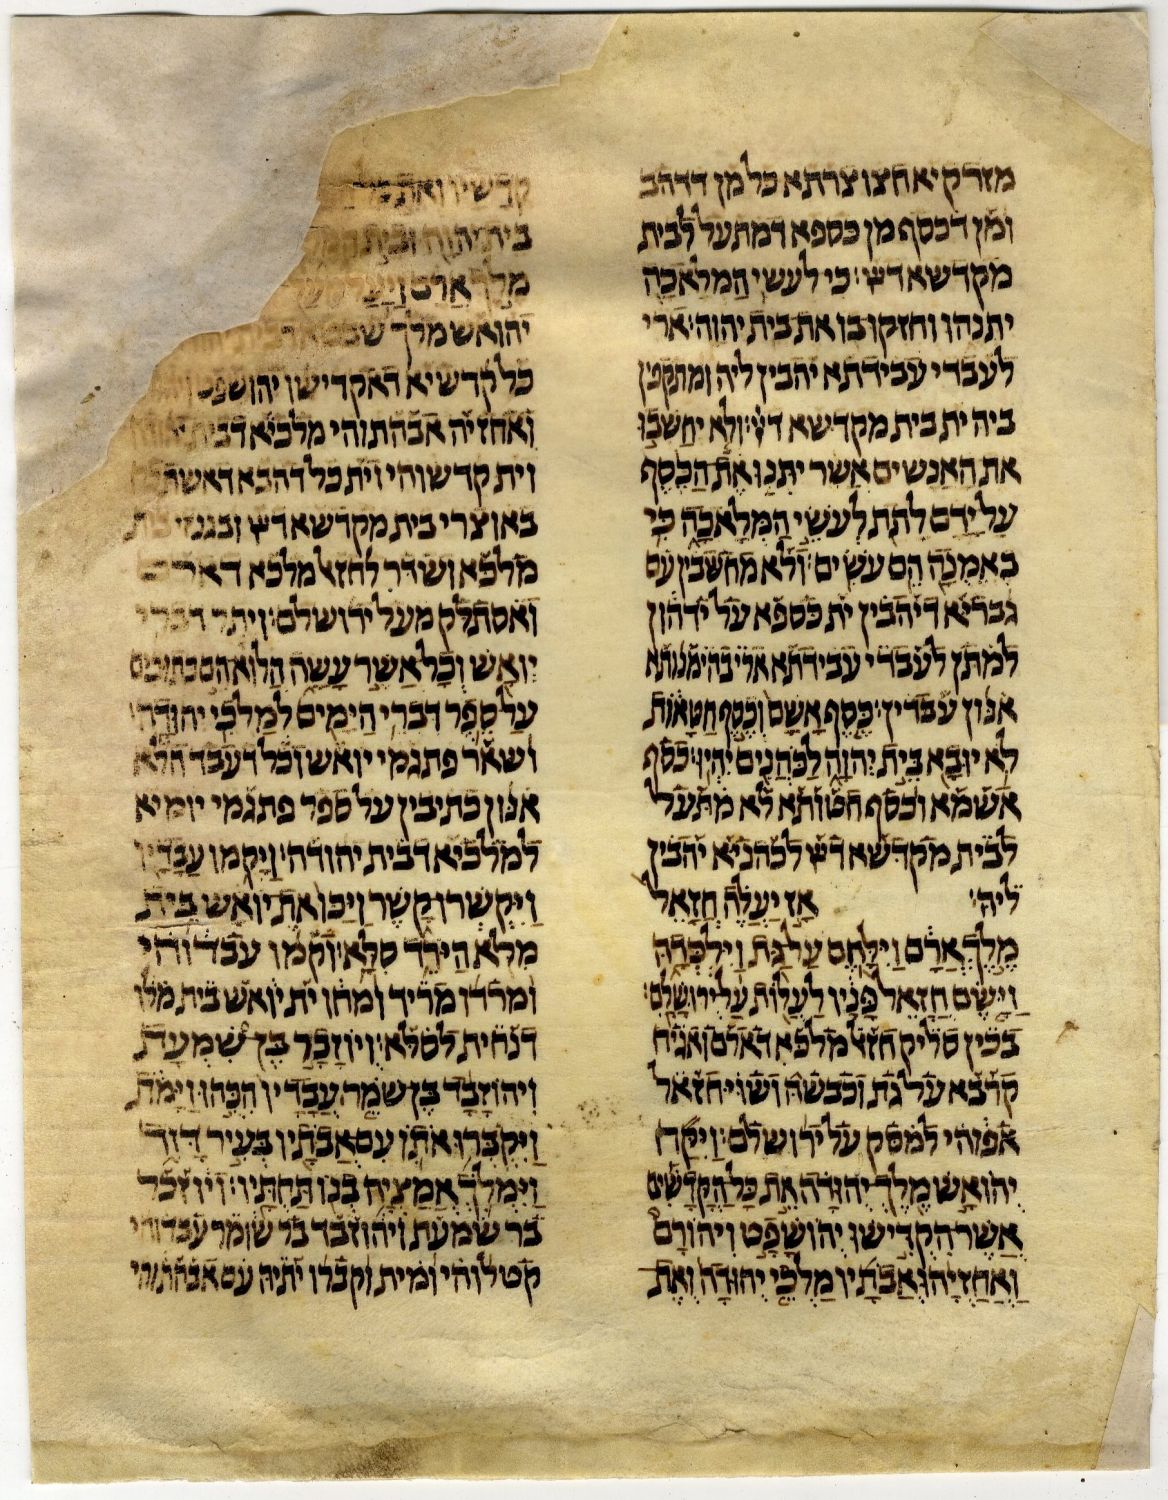 מזרקיא חצוצרתא כל מן דדהב
ומן דכסף מן כספא דמתעל לבית
מקדשא דיי׃ כי לעשי המלאכה
יתנהו וחזקו בו את בית יהוה׃ ארי
לעבדי עבידתא יהבין ליה ומתקפין
ביה ית בית מקדשא דיי׃ ולא יחשבו
את האנשים אשר יתנו את הכסף
על ידם לתת לעשי המלאכה כי
באמנה הם עשים׃ ולא מחשבין עם
גבריא דיהבין ית כספא על ידהון
למתן לעבדי עבידתא ארי בהימנותא
אנון עבדין׃ כסף אשם וכסף חטאות
לא יובא בית יהוה לכהנים יהיו׃ כסף
אשמא וכסף חטותא לא מתעל
לבית מקדשא דיי לכהניא יהבין
ליה׃ אז יעלה חזאל
מלך ארם וילחם על גת וילכדה
וישם חזאל פניו לעלות על ירושלם׃
בכין סליק חזאל מלכא דארם ואגיח
קרבא על גת וכבשה ושוי חזאל
אפוהי למסק על ירושלם׃ ויקח
יהואש מלך יהודה את כל הקדשים
אשר הקדישו יהושפט ויהורם
ואחזיהו אבתיו מלכי יהודה ואת
קדשיו ואת
בית יהוה ובית
מלך ארם ויעל מעל
יהואש מלך
כל קדשיא דאקדישו יהושפט
ואחזיה אבהתוהי מלכיא דבית
וית קדשוהי וית כל דהבא דאשתכח
באוצרי בית מקדשא דיי ובגנזי בית
מלכא ושדר לחזאל מלכא דארם
ואסתלק מעל ירושלם׃ ויתר דברי
יואש וכל אשר עשה הלוא הם כתובים
על ספר דברי הימים למלכי יהודה׃
ושאר פתגמי יואש וכל דעבד הלא
אנון כתיבין על ספר פתגמי יומיא
למלכיא דבית יהודה׃ ויקמו עבדיו
ויקשרו קשר ויכו את יואש בית
מלא הירד סלא׃ וקמו עבדוהי
ומרדו מריד ומחו ית יואש בית מלו
דנחית לסלא׃ ויוזכר בן שמעת
ויהוזבד בן שמר עבדיו הכהו וימת
ויקברו אתו עם אבתיו בעיר דוד
וימלך אמציה בנו תחתיו׃ ויוזכר
בר שמעת ויהוזבד בר שומר עבדוהי
קטלוהי ומית וקברו יתיה עם אבהתוהי